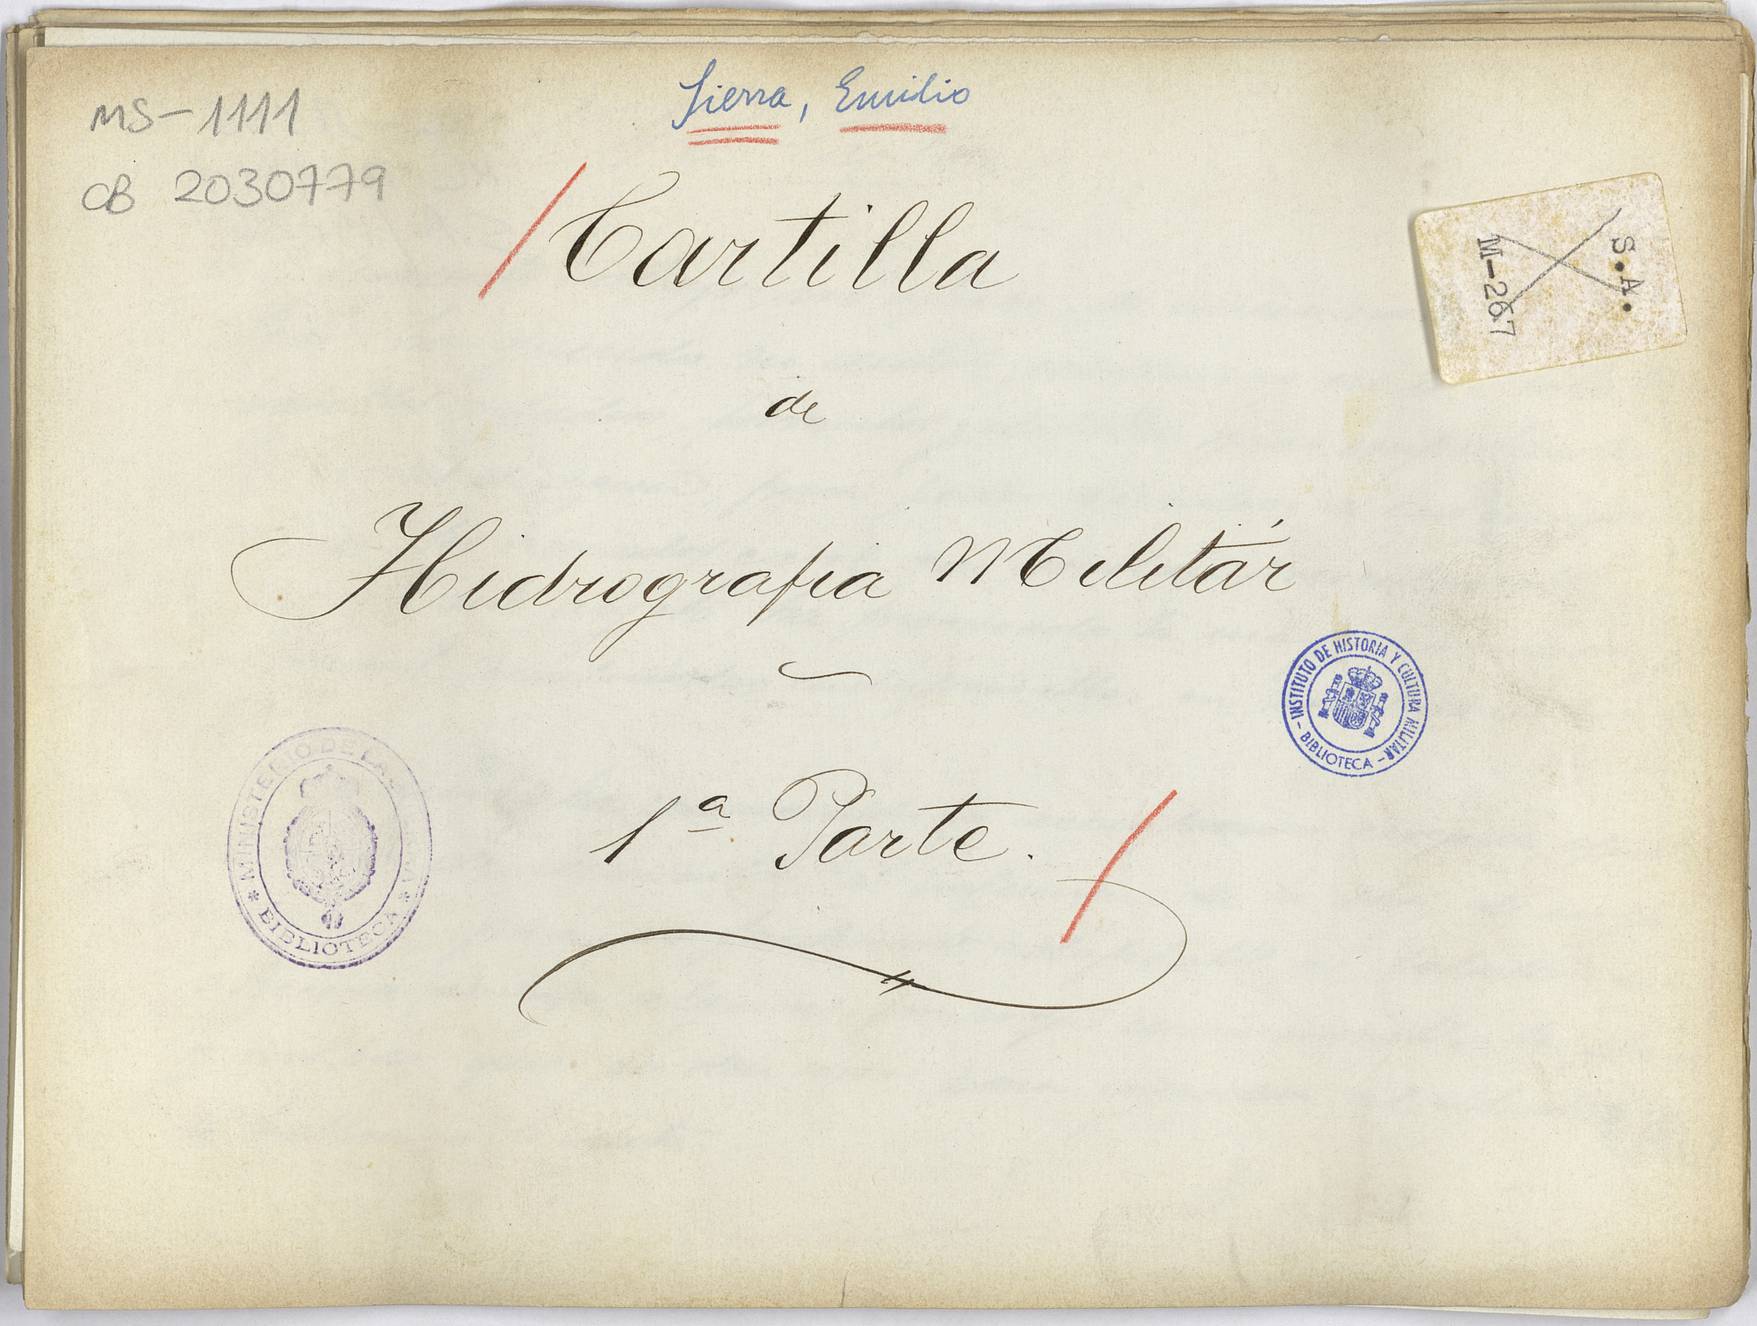 MS-1111
CB 2030779
Sierra, Emilio
Cartilla
de
Hidrografia Militár
1ª Parte.
S.A.
M-267
INSTITUTO DE HISTORIA Y CULTURA MILITAR
- BIBLIOTECA -
MINISTERIO DE LA
* BIBLIOTECA *